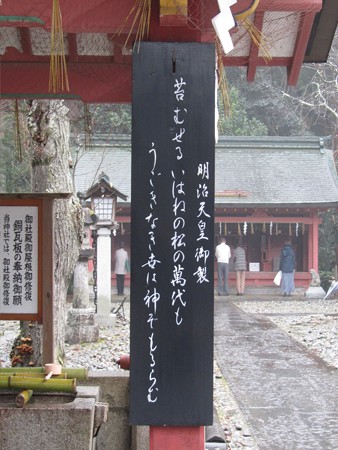 明治天皇御製
苔むせるいはねの松の萬代も
うごきなき世は神ぞもるらむ
御社殿御屋根御修復
銅瓦板の奉納御願
当神社では御社殿御修復